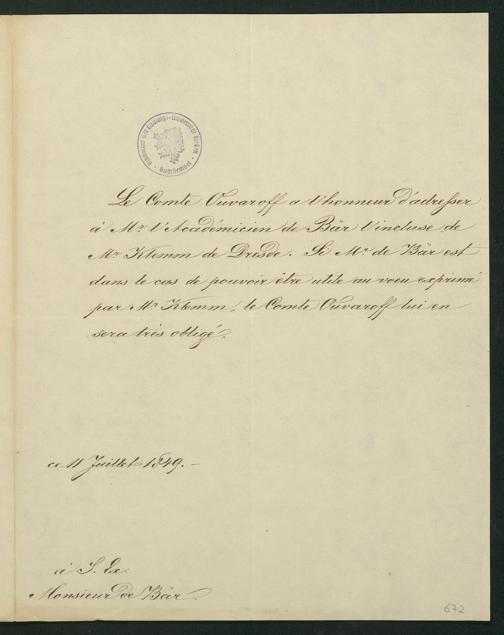 Le Comte Ouvaroff a l'honneur d'adresser
à Mr. l'Académicien de Bär l'incluse de
Mr. Klemm de Dresde. Si Mr. de Bär est
dans le cas de pouvoir être utile au voeu exprimé
par Mr. Klemm, le Comte Ouvaroff lui en
sera très obligé.
ce 11 Juillet 1849.–
à S. Ex.
Monsieur de Bär
672